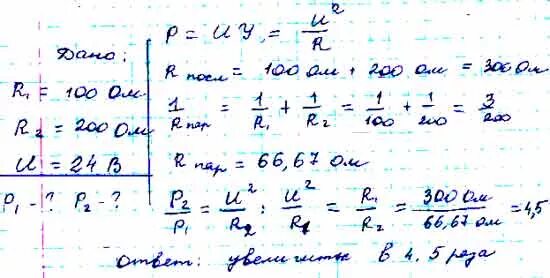 Дано:
R₁ = 100 Ом
R₂ = 200 Ом
U = 24 В
P₁ - ? P₂ - ?
P = UУ = U²/R
R посл = 100 Ом + 200 Ом = 300 Ом
1/R пар = 1/R₁ + 1/R₂ = 1/100 + 1/200 = 3/200
R пар = 66,67 Ом
P₂/P₁ = U²/R₂ : U²/R₁ = R₁/R₂ = 300 Ом/66,67 Ом = 4,5
Ответ: увеличить в 4.5 раза